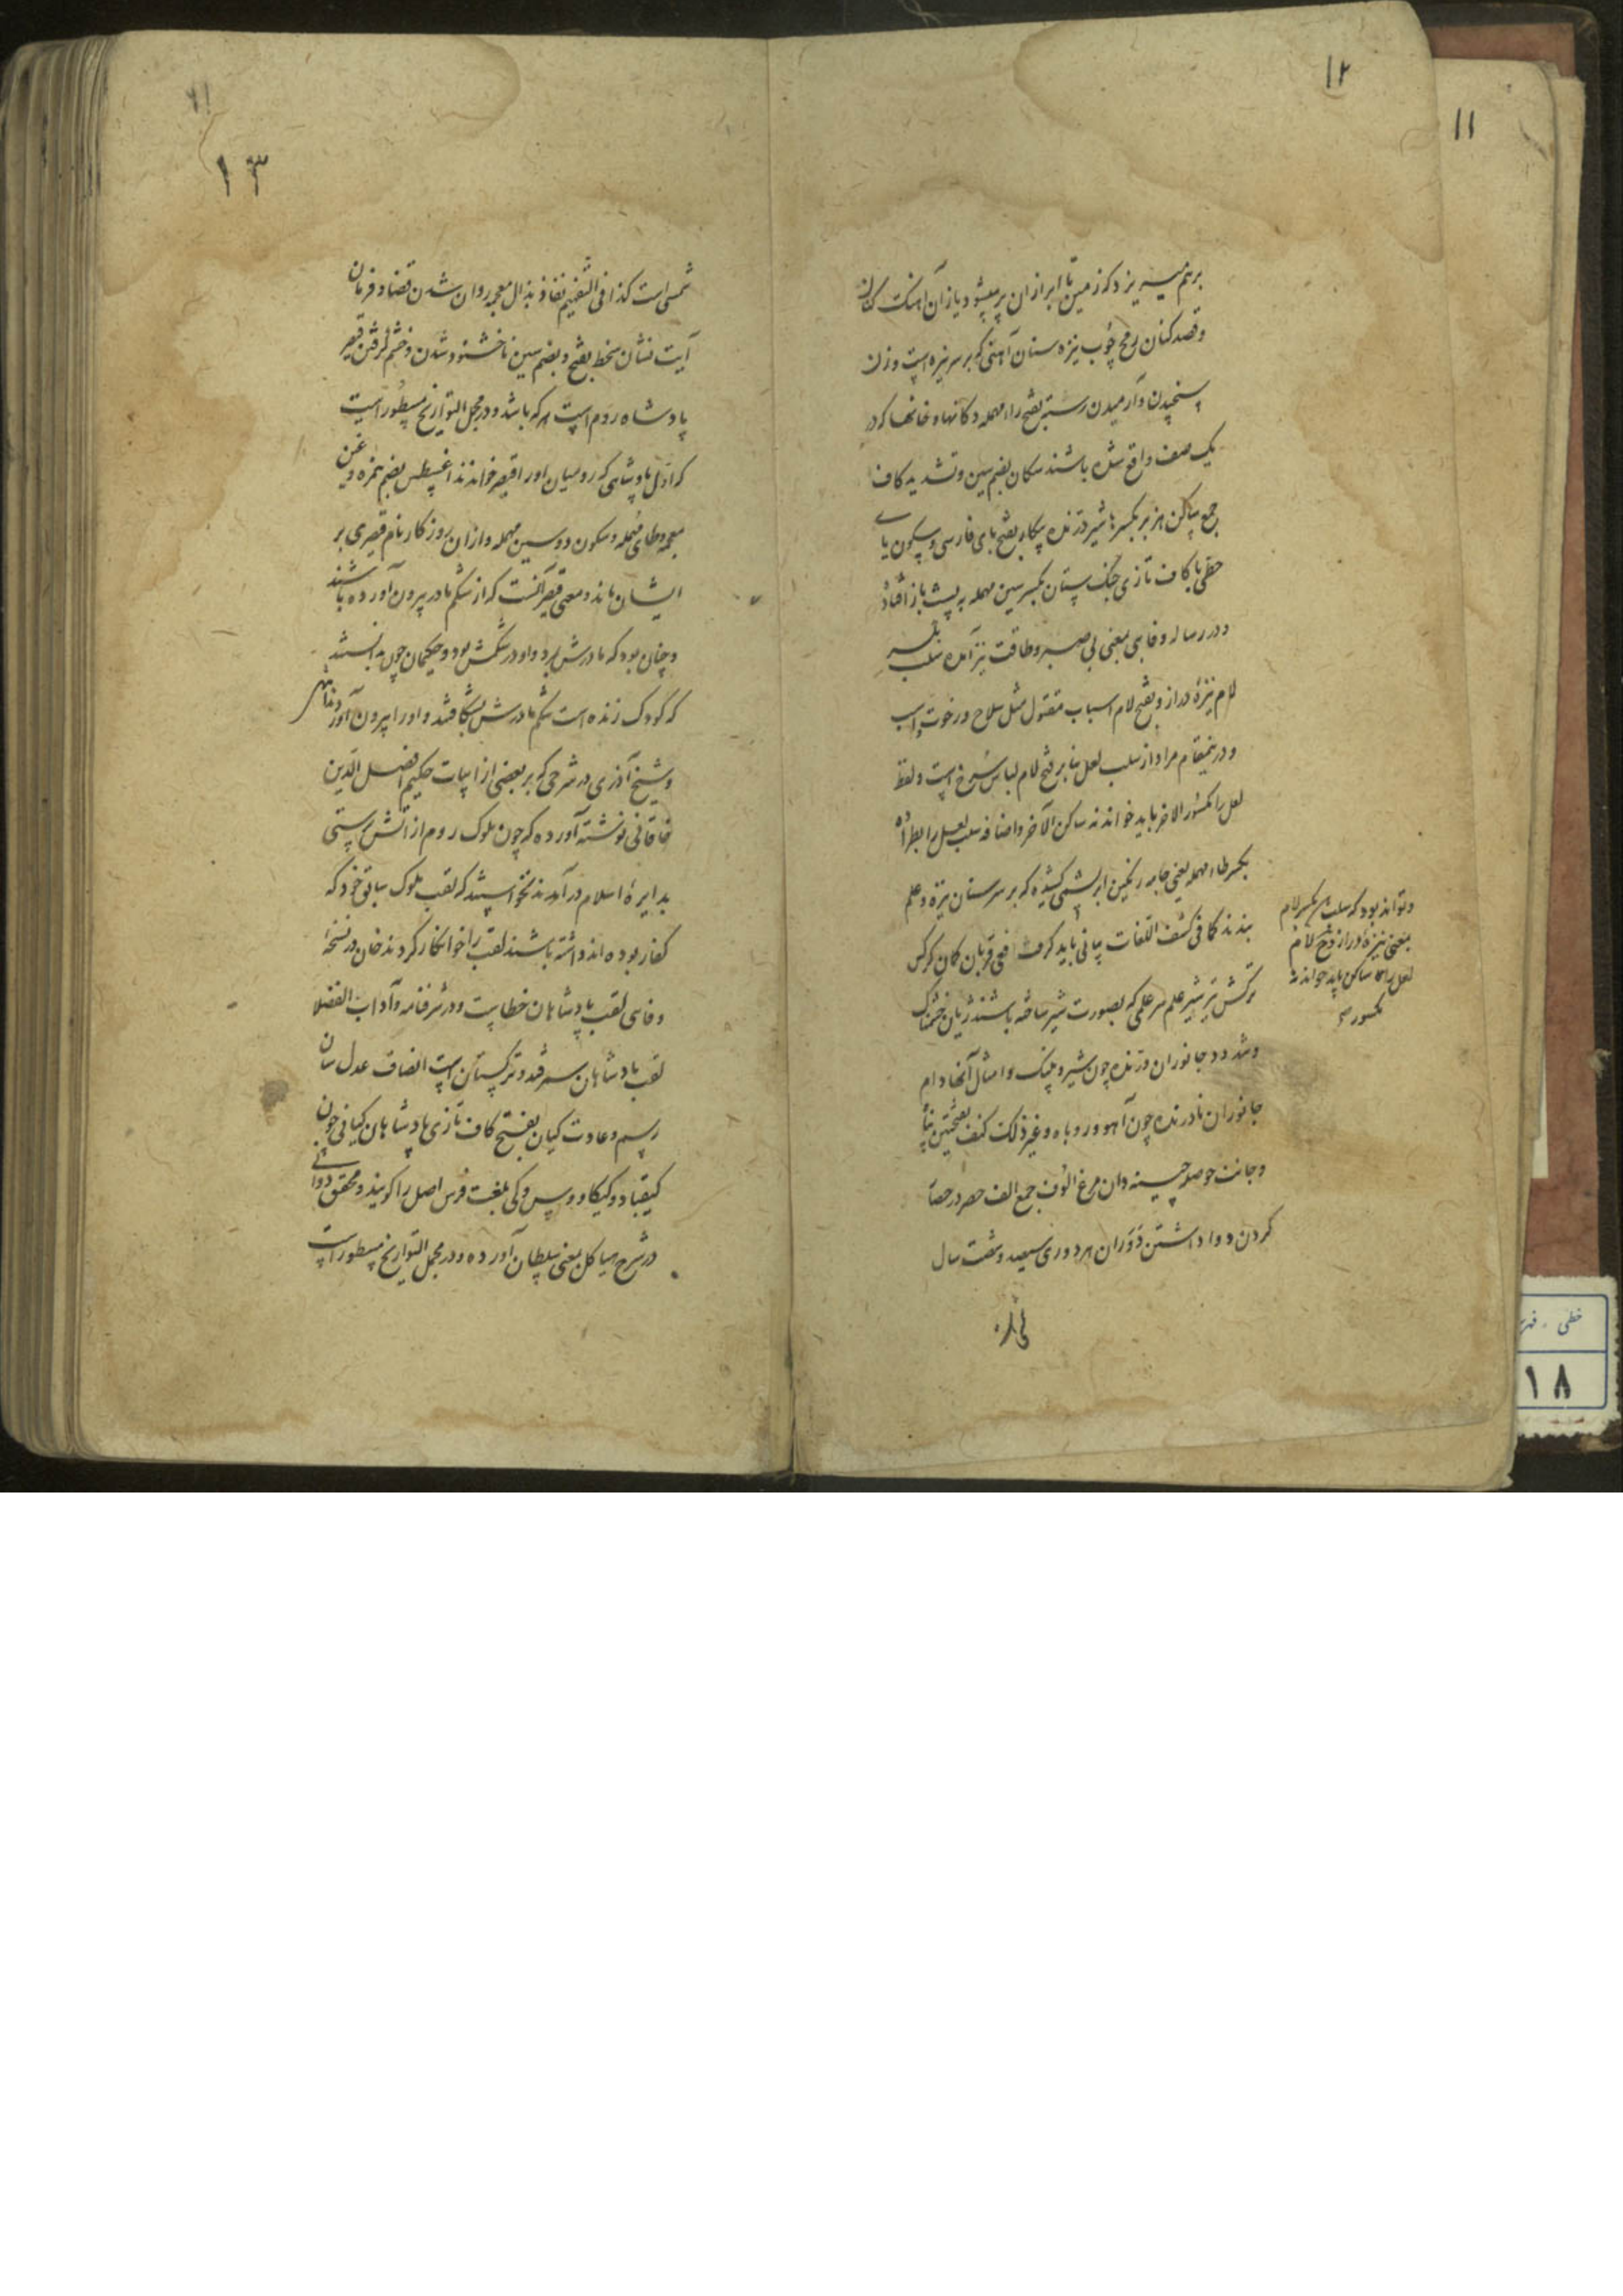 ۱۲
۱۱
برهم میریزد که زمین تا ابر ازان پر میشود یازان آهنک کنان
وقصد کنان رمح چوب نیزه سنان آهنی که بر سر نیزه است وزن
سنجیدن و آرمیدن رسته بفتح راء مهمله دکانها و خانها که در
یک صف واقع شده باشند سکان بضم سین و تشدید کاف
جمع ساکن هزبر بکسر ها شیر درنده پیکار بفتح بای فارسی و سکون یای
حطی با کاف تازی جنک ستان بکسر سین مهمله به پشت باز افتاده
ودر رساله وفایی بمعنی بی صبر و طاقت نیز آمده سلب بکسر
لام نیزه دراز و بفتح لام اسباب مقتول مثل سلاح و رخوت و اسب
ودرینمقام مراد از سلب لعل بنا بر فتح لام لباس سرخ است ولفظ
لعل را مکسور الاخر باید خواند نه ساکن الآخر واضافه سلب لعل را بطراده
بکسر طاء مهمله یعنی جامه رنکین ابریشمی کشیده که بر سر سنان نیزه و علم
بندند کما فی کشف اللغات بیانی باید کرفت افعی قربان کمان کرکس
ترکش تیر شیر علم سر علمی که بصورت شیر ساخته باشند ژیان خشمناک
وتند دد جانوران درنده چون شیر و پلنک و امثال آنها دام
جانوران نادرنده چون آهو و روباه و غیر ذلک کنف بفتحتین پناه
وجانب حوصله چینه دان مرغ الوف جمع الف حصر در حصار
کردن و وا داشتن دوران هر دوری سیصد و شصت سال
وتواند بود که سلب بکسر لام
بمعنی نیزه دراز و فتح لام
لعل را ساکن باید خواند نه
مکسور
۱۳
شمسی است کذا فی التفهیم نفاذ بذال معجمه روان شدن قضا و فرمان
آیت نشان سخط بفتح و بضم سین ناخشنود شدن و خشم کرفتن قیصر
پادشاه روم است هر که باشد و در مجمل التواریخ مسطور است
که اول پادشاهی که رومیان او را قیصر خواندند اغسطس بضم همزه و غین
معجمه و طای مهمله و سکون دو سین مهمله و ازان روز کار نام قیصری بر
ایشان ماند و معنی قیصر آنست که از شکم مادر بیرون آورده باشند
و چنان بود که مادرش بمرد و او در شکمش بود و حکیمان چون بدانستند
که کودک زنده است شکم مادرش بشکافتند و او را بیرون آوردند
و شیخ آذری در شرحی که بر بعضی از ابیات حکیم افضل الدین
خاقانی نوشته آورده که چون ملوک روم از آتش پرستی
بدایره اسلام در آمدند نخواستند که لقب ملوک سابق خود که
کفار بوده اند داشته باشند لقب را خوانکار کردند خان در نسخه
وفایی لقب پادشاهان خطاست و در شرفنامه و آداب الفضلا
لقب پادشاهان سمرقند و ترکستان است انصاف عدل سان
رسم و عادت کیان بفتح کاف تازی پادشاهان کیانی چون
کیقباد و کیکاووس و کی بلغت فرس اصل را کویند و محقق دوانی
در شرح هیاکل بمعنی سلطان آورده و در مجمل التواریخ مسطور است
خطی
۱۸